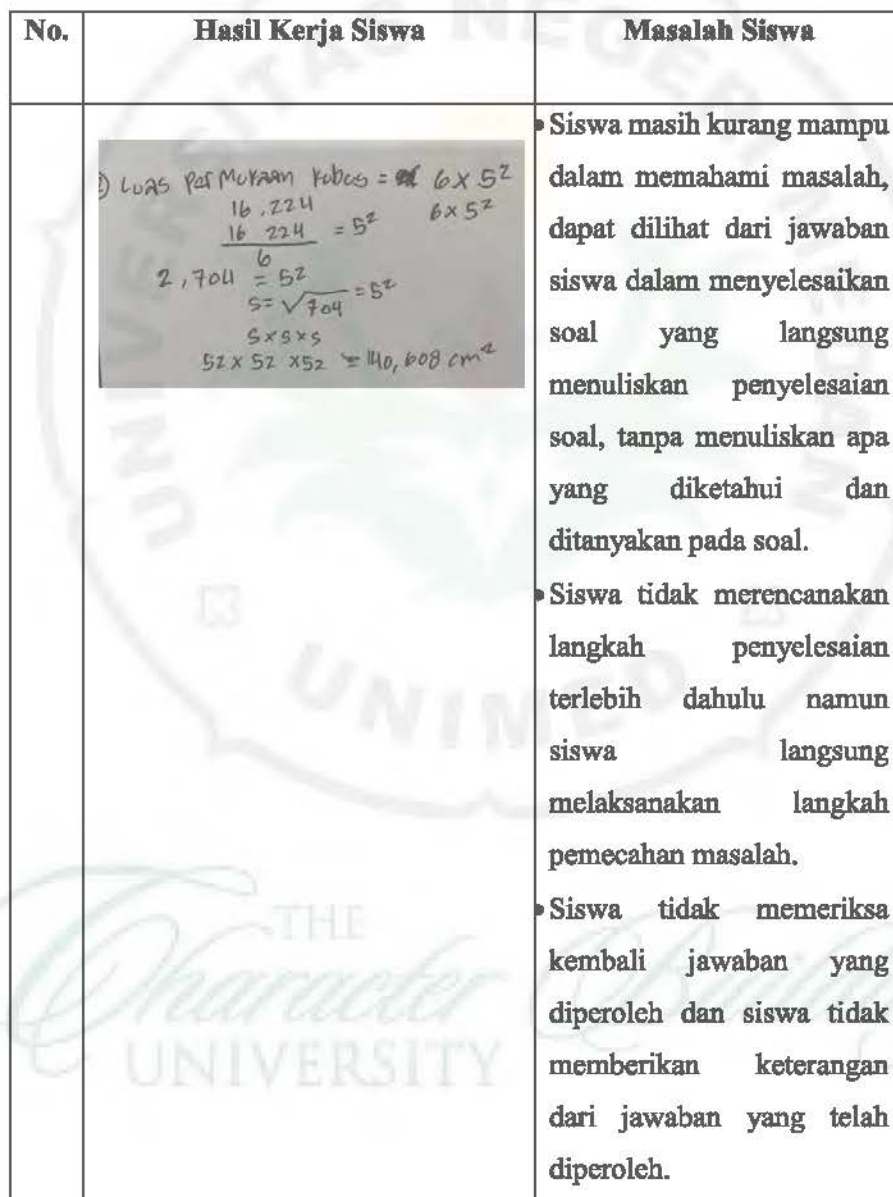 No.
Hasil Kerja Siswa
Masalah Siswa
) LUAS PERMUKAAN KUBUS = 6 x 5²
16.224
6 x 5²
16 224 = 5²
6
2,704 = 5²
S = √704 = 5²
S x S x S
52 x 52 x 52 = 140,608 cm²
• Siswa masih kurang mampu
dalam memahami masalah,
dapat dilihat dari jawaban
siswa dalam menyelesaikan
soal yang langsung
menuliskan penyelesaian
soal, tanpa menuliskan apa
yang diketahui dan
ditanyakan pada soal.
• Siswa tidak merencanakan
langkah penyelesaian
terlebih dahulu namun
siswa langsung
melaksanakan langkah
pemecahan masalah.
• Siswa tidak memeriksa
kembali jawaban yang
diperoleh dan siswa tidak
memberikan keterangan
dari jawaban yang telah
diperoleh.
UNIVERSITAS NEGERI MEDAN
UNIMED
THE
Character Building
UNIVERSITY